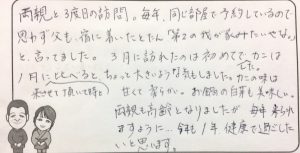 両親と3度目の訪問。毎年、同じ部屋で予約しているので
思わず父も、宿に着いたとたん「第2の我が家みたいやな」
と、言ってました。3月に訪れたのは初めてで、カニは
でした。
1月に比べると、ちょっと大きいような気もしました。カニの味は
(来させて頂いて時)
甘くて柔らか。お鍋の白菜も美味しい。
両親も高齢となりましたが 毎年 来られ
ますように… 今年も1年 健康で過ごした
いと思います。